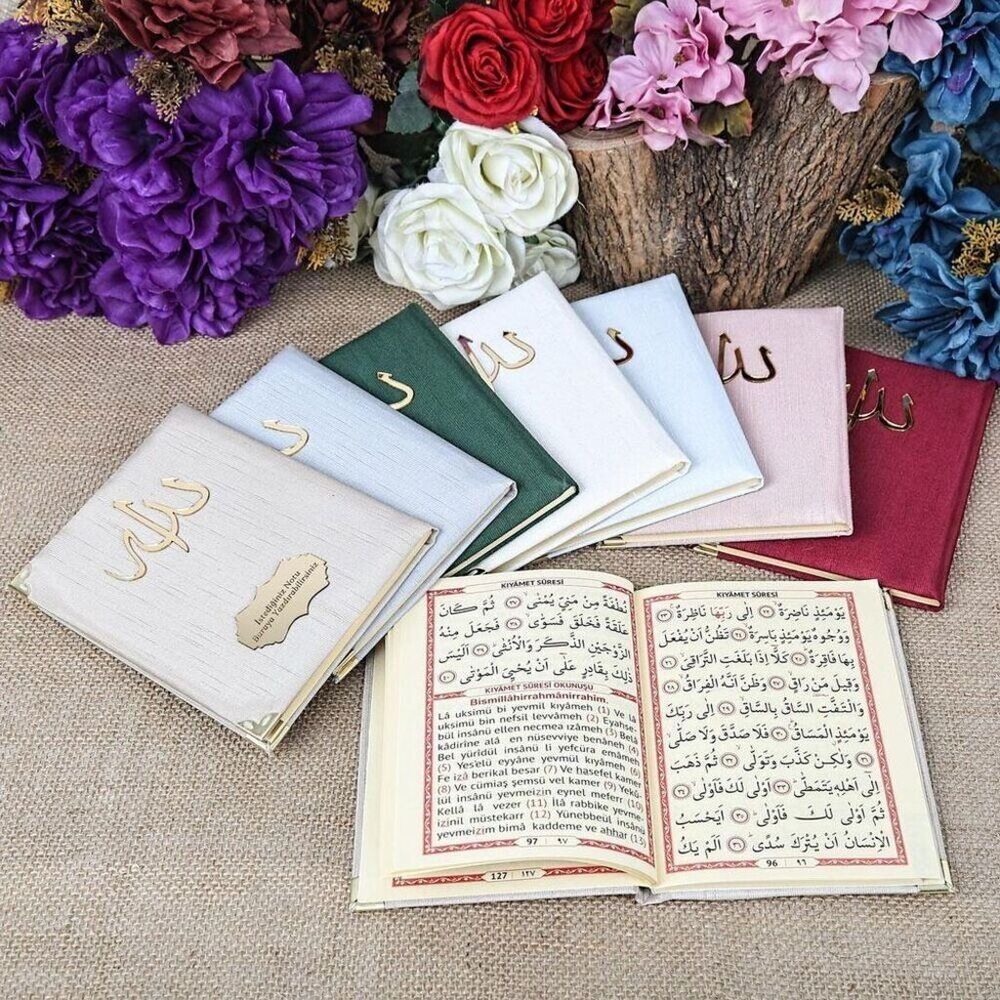 الله
İstediğiniz Notu
Buraya Yazdırabilirsiniz
KIYÂMET SÛRESİ
يَوْمَئِذٍ نَاضِرَةٌ ﴿٢٢﴾ اِلٰى رَبِّهَا نَاظِرَةٌ ﴿٢٣﴾
وَوُجُوهٌ يَوْمَئِذٍ بَاسِرَةٌ ﴿٢٤﴾ تَظُنُّ اَنْ يُفْعَلَ
بِهَا فَاقِرَةٌ ﴿٢٥﴾ كَلَّا اِذَا بَلَغَتِ التَّرَاقِيَ ﴿٢٦﴾
وَقِيلَ مَنْ رَاقٍ ﴿٢٧﴾ وَظَنَّ اَنَّهُ الْفِرَاقُ ﴿٢٨﴾
وَالْتَفَّتِ السَّاقُ بِالسَّاقِ ﴿٢٩﴾ اِلٰى رَبِّكَ
يَوْمَئِذٍ الْمَسَاقُ ﴿٣٠﴾ فَلَا صَدَّقَ وَلَا صَلّٰى
﴿٣١﴾ وَلٰكِنْ كَذَّبَ وَتَوَلّٰى ﴿٣٢﴾ ثُمَّ ذَهَبَ
اِلٰى اَهْلِهِ يَتَمَطّٰى ﴿٣٣﴾ اَوْلٰى لَكَ فَاَوْلٰى ﴿٣٤﴾
ثُمَّ اَوْلٰى لَكَ فَاَوْلٰى ﴿٣٥﴾ اَيَحْسَبُ
الْاِنْسَانُ اَنْ يُتْرَكَ سُدًى ﴿٣٦﴾ اَلَمْ يَكُ
96 ٩٦
KIYÂMET SÛRESİ
نُطْفَةً مِنْ مَنِيٍّ يُمْنٰى ﴿٣٧﴾ ثُمَّ كَانَ
عَلَقَةً فَخَلَقَ فَسَوّٰى ﴿٣٨﴾ فَجَعَلَ مِنْهُ
الزَّوْجَيْنِ الذَّكَرَ وَالْاُنْثٰى ﴿٣٩﴾ اَلَيْسَ
ذٰلِكَ بِقَادِرٍ عَلٰى اَنْ يُحْيِيَ الْمَوْتٰى ﴿٤٠﴾
KIYAMET SÛRESİ OKUNUŞU
Bismillâhirrahmânirrahîm.
Lâ uksimü bi yevmil kıyâmeh (1) Ve lâ
uksimü bin nefsil levvâmeh (2) Eyahse-
bül insânü ellen necmea ızâmeh (3) Belâ
kâdirîne alâ en nüsevviye benâneh (4)
Bel yürîdül insânü li yefcüra emâmeh
(5) Yes'elü eyyâne yevmül kıyâmeh (6)
Fe izâ berikal besar (7) Ve hasefel kamer
(8) Ve cümiaş şemsü vel kamer (9) Yekû-
lül insânü yevmeizin eynel meferr (10)
Kellâ lâ vezer (11) İlâ rabbike yevme-
izinil müstekarr (12) Yünebbeül insânü
yevmeizim bimâ kaddeme ve ahhar (13)
97 ٩٧
127 ١٢٧